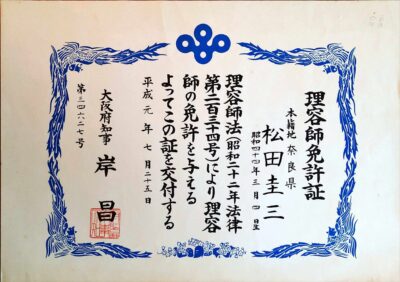 理容師免許証
本籍地 奈良県
松田圭三
昭和四十四年三月四日生
理容師法(昭和二十二年法律
第二百三十四号)により理容
師の免許を与える
よってこの証を交付する
平成元年七月二十五日
大阪府知事 岸昌
第三四六二七号